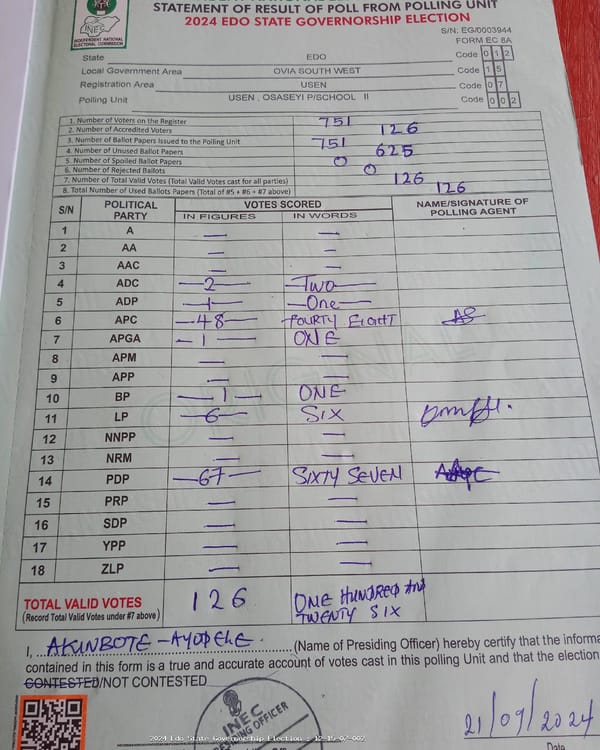 STATEMENT OF RESULT OF POLL FROM POLLING UNIT
2024 EDO STATE GOVERNORSHIP ELECTION
INEC
INDEPENDENT NATIONAL ELECTORAL COMMISSION
S/N: EG/0003944
FORM EC 8A
State EDO Code 0 1 2
Local Government Area OVIA SOUTH WEST Code 1 5
Registration Area USEN Code 0 7
Polling Unit USEN , OSASEYI P/SCHOOL II Code 0 0 2
1. Number of Voters on the Register 751
2. Number of Accredited Voters 126
3. Number of Ballot Papers Issued to the Polling Unit 751
4. Number of Unused Ballot Papers 625
5. Number of Spoiled Ballot Papers 0
6. Number of Rejected Ballots 0
7. Number of Total Valid Votes (Total Valid Votes cast for all parties) 126
8. Total Number of Used Ballots Papers (Total of #5 + #6 + #7 above) 126
S/N POLITICAL PARTY VOTES SCORED NAME/SIGNATURE OF POLLING AGENT
IN FIGURES IN WORDS
1 A — —
2 AA — —
3 AAC — —
4 ADC —2— —Two—
5 ADP —1— —One—
6 APC —48— FOURTY EIGHT
7 APGA —1— ONE
8 APM — —
9 APP — —
10 BP —1— ONE
11 LP —6— SIX
12 NNPP — —
13 NRM — —
14 PDP —67— SIXTY SEVEN
15 PRP — —
16 SDP — —
17 YPP — —
18 ZLP — —
TOTAL VALID VOTES 126 ONE HUNDRED AND
(Record Total Valid Votes under #7 above) TWENTY SIX
I, AKINBOTE-AYODELE (Name of Presiding Officer) hereby certify that the informa
contained in this form is a true and accurate account of votes cast in this polling Unit and that the election
CONTESTED/NOT CONTESTED
INEC
PRESIDING OFFICER
21/09/2024
Date
2024 Edo State Governorship Election - 12-15-07-002